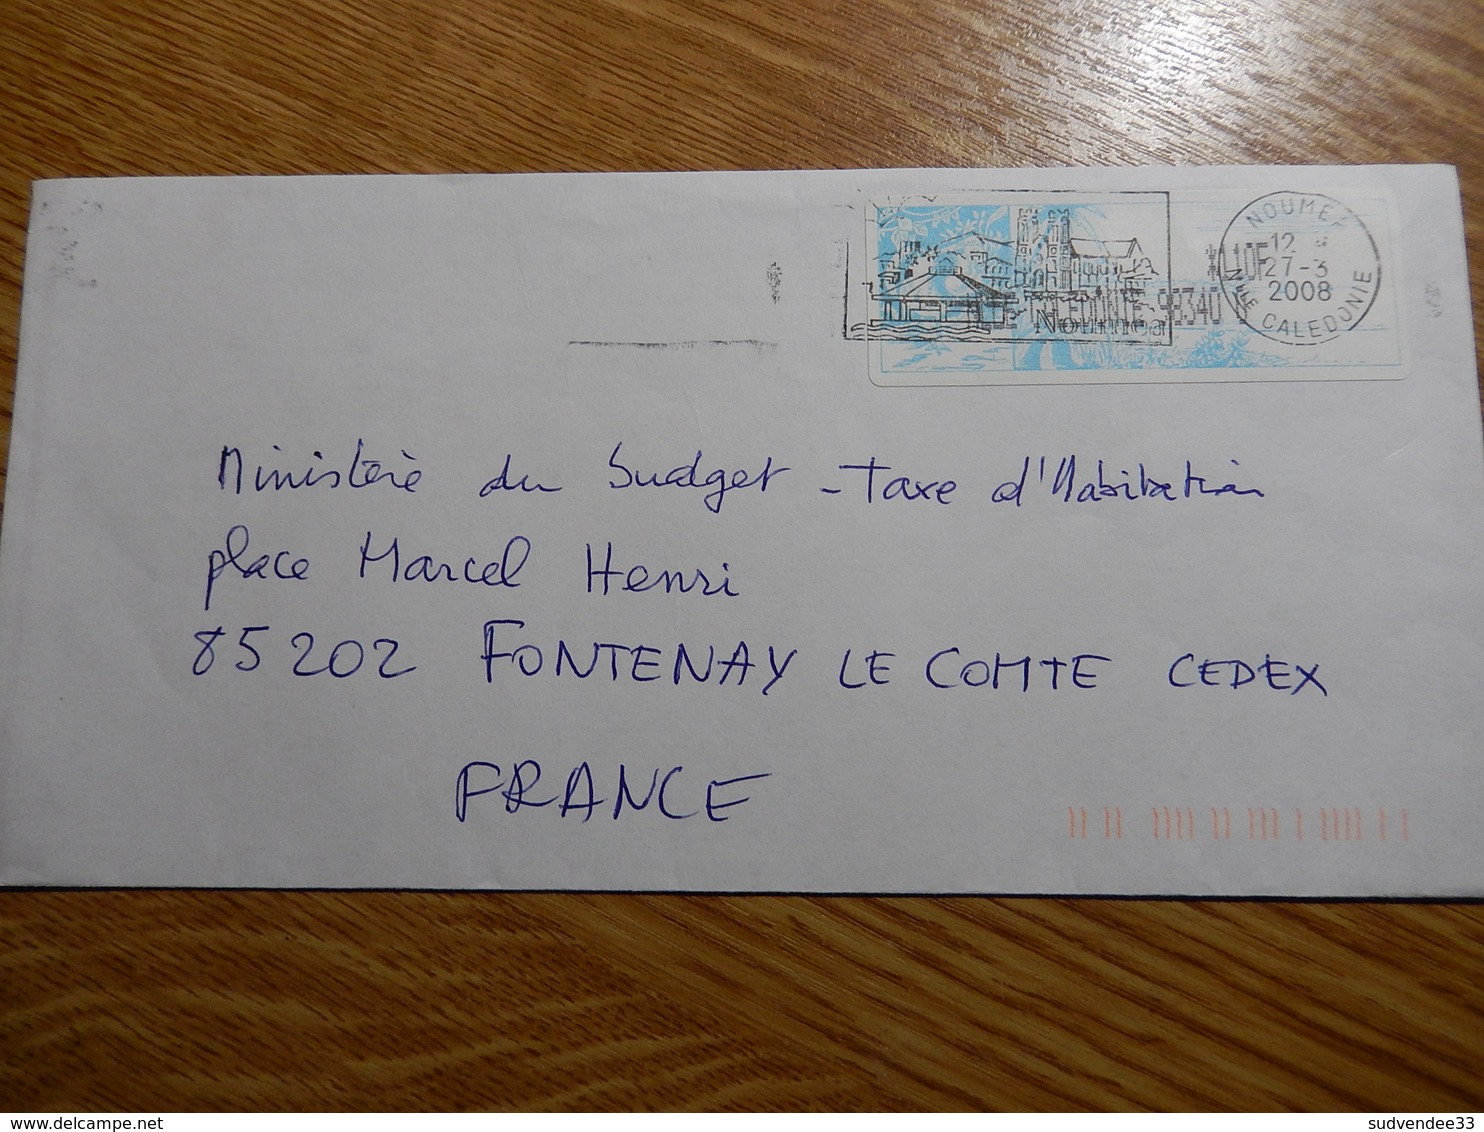 NOUMEA
12
*0,110F
27-3
2008
CALEDONIE 98340
Nouméa
Nlle CALEDONIE
Ministère du budget - Taxe d'Habitation
place Marcel Henri
85202 FONTENAY LE COMTE CEDEX
FRANCE
sudvendee33